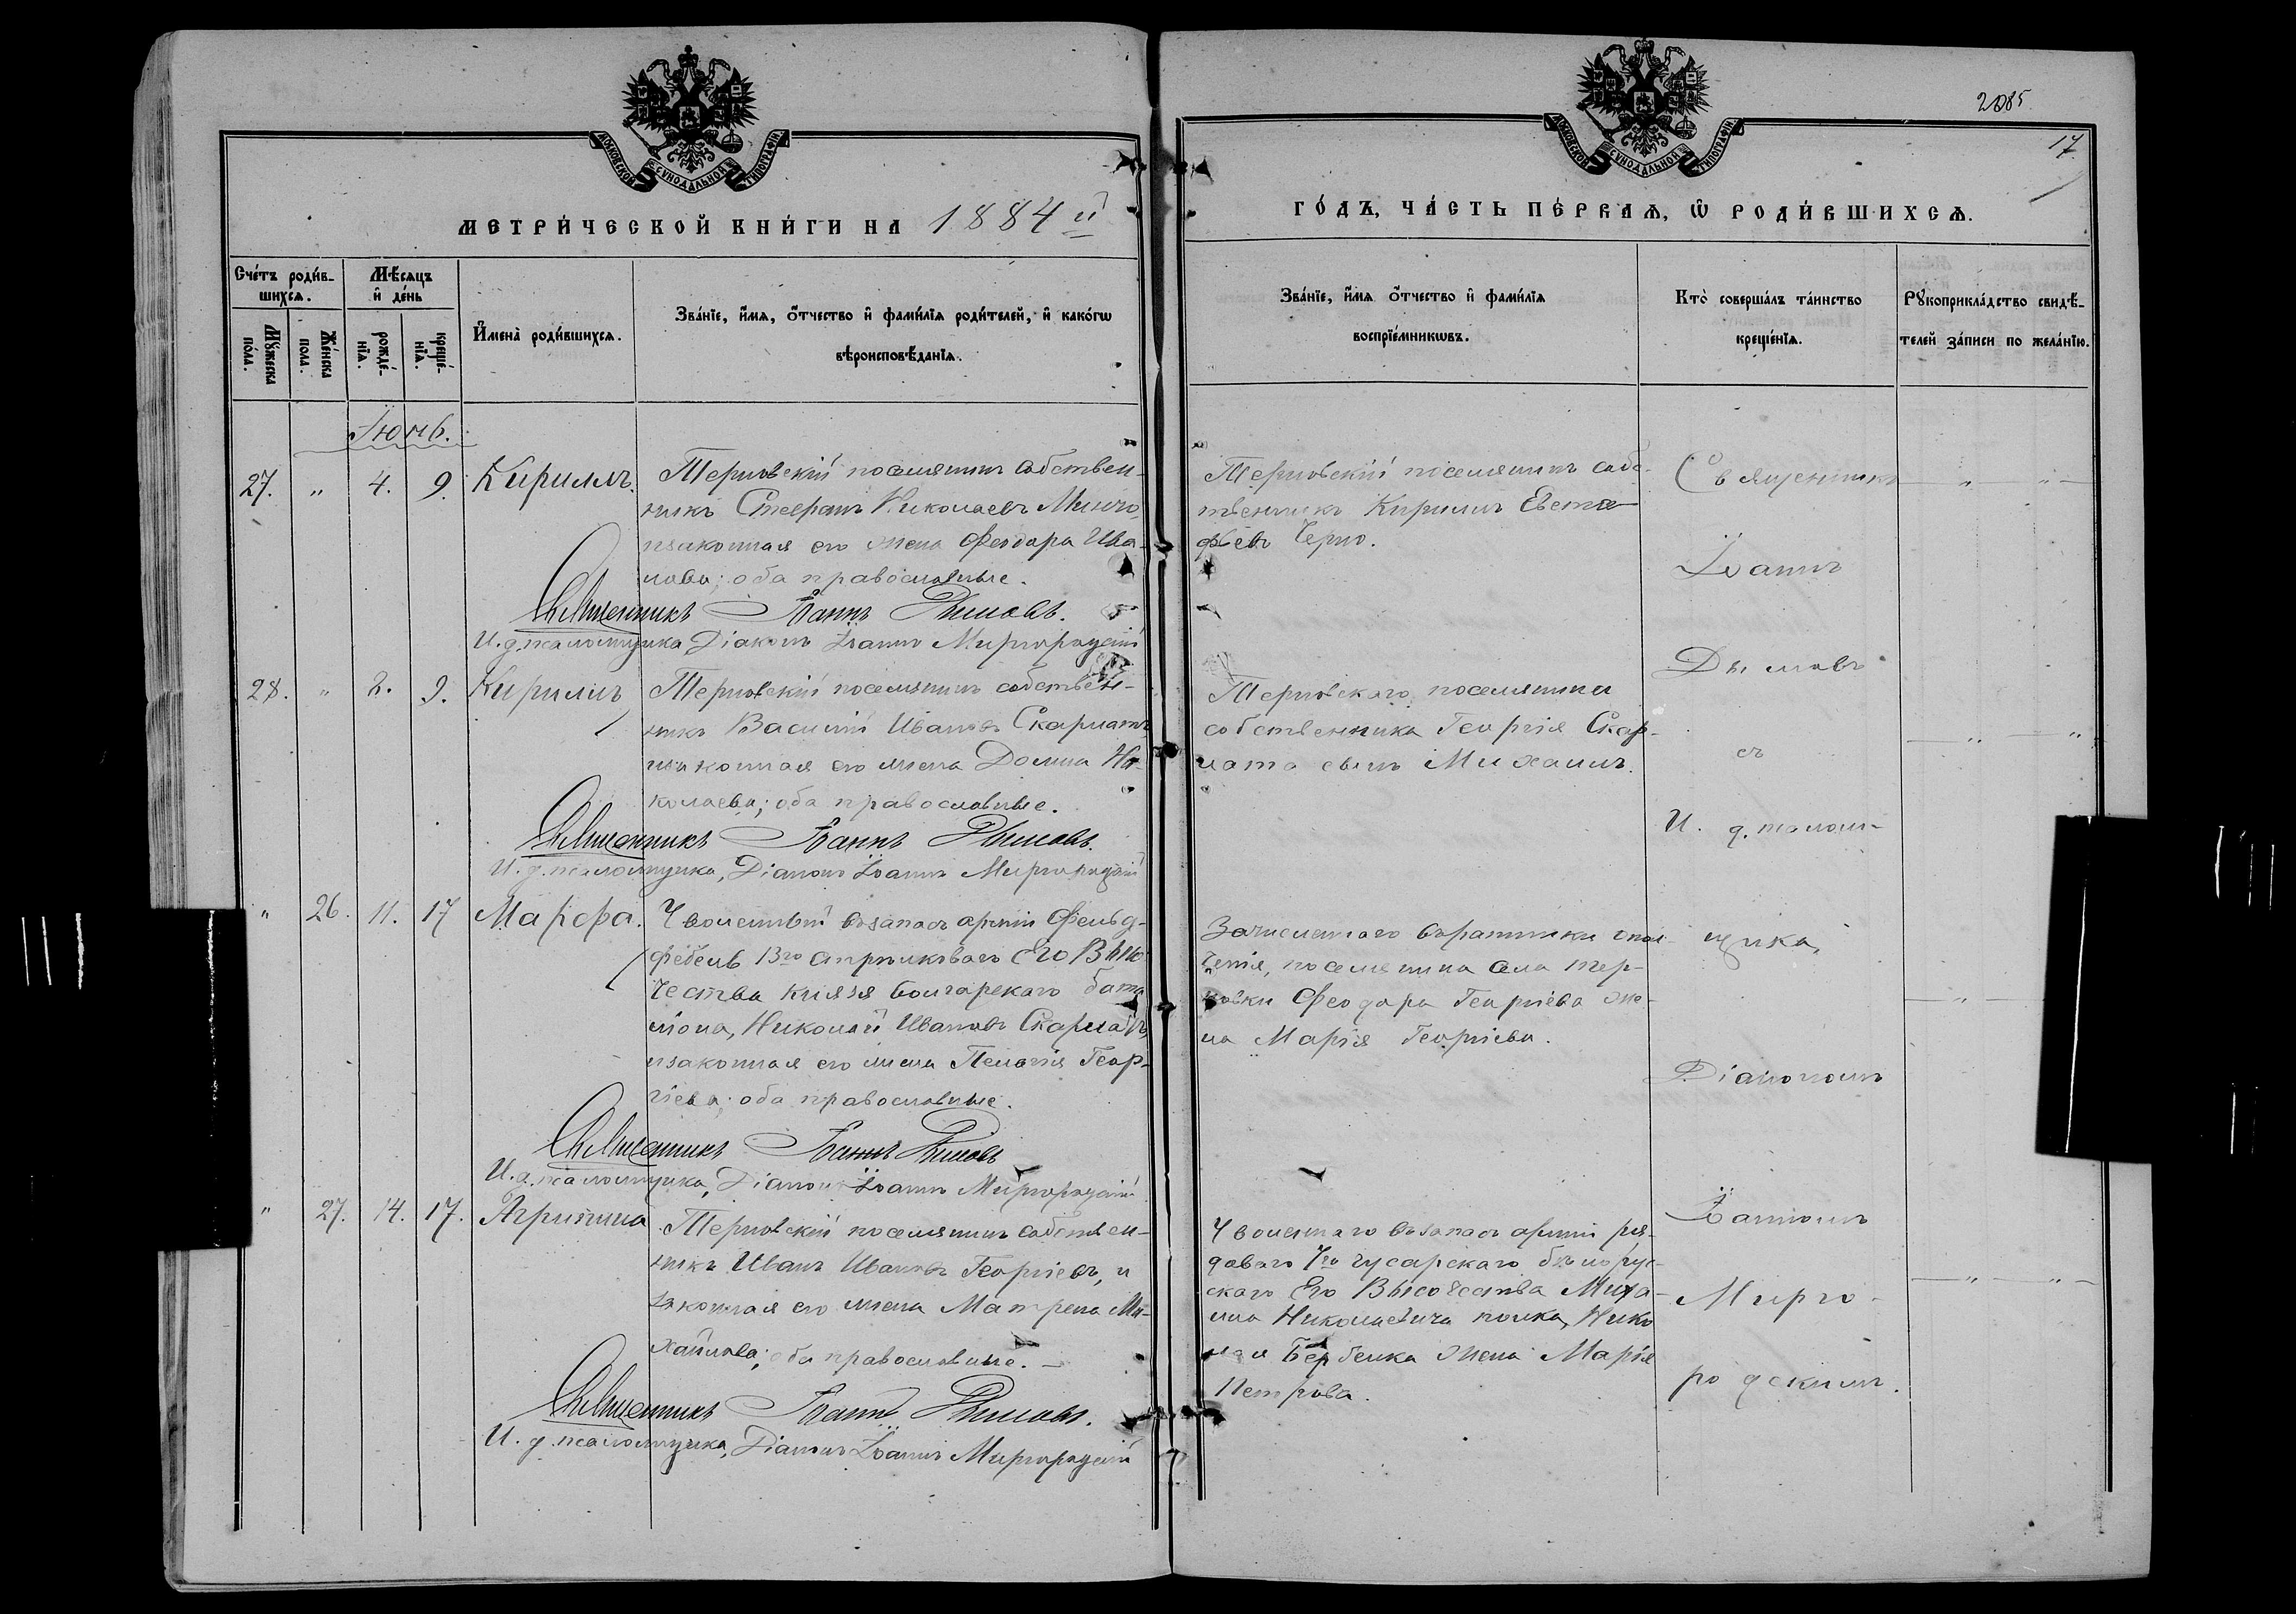 МОСКОВСКОЙ СѴНОДАЛЬНОЙ ТИПОГРАФІИ
МЕТРИ́ЧЕСКОЙ КНИ́ГИ НА 1884 й
Сче́тъ роди́в-
шихсѧ.
Мѣ́сѧцъ
и҆ де́нь
Мꙋ́жеска
по́ла.
Же́нска
пола.
рожде́-
нїѧ.
креще́-
нїѧ.
И҆мена̀ роди́вшихсѧ.
Зва́нїе, и҆́мѧ, ѻ҆́тчество и҆ фами́лїѧ роди́телей, и҆ како́гѡ
вѣроисповѣ́данїѧ.
Іюнь.
27. " 4. 9. Кириллъ.
Терновскій поселянинъ собствен-
никъ Стефанъ Николаевъ Минчо,
изаконная его жена Феодора Ива-
нова; оба православные.
Священникъ Іоаннъ Дымовъ.
И. д. псаломщика Діаконъ Іоаннъ Миргородскій
28. " 8. 9. Кириллъ
Терновскій поселянинъ собствен-
никъ Василій Ивановъ Скарлатъ
изаконная его жена Домна Ни-
колаева; оба православные.
Священникъ Іоаннъ Дымовъ.
И. д. псаломщика, Діаконъ Іоаннъ Миргородскій
" 26. 11. 17 Марѳа.
Уволенный възапасъ арміи Фельд-
фебель 13го стрѣлковаго Его Высо-
чества князя Болгарскаго бата
ліона, Николай Ивановъ Скарлатъ,
изаконная его жена Пелагія Геор-
гіева; оба православные.
Священникъ Іоаннъ Дымовъ
И. д. псаломщика, Діаконъ Іоаннъ Миргородскій
" 27. 14. 17. Агрипина
Терновскій поселянинъ собствен-
никъ Иванъ Ивановъ Георгіевъ, и
законная его жена Матрена Ми-
хайлова; оба православные. —
Священникъ Іоаннъ Дымовъ.
И. д. псаломщика, Діаконъ Іоаннъ Миргородскій
МОСКОВСКОЙ СѴНОДАЛЬНОЙ ТИПОГРАФІИ
17.
ГО́ДЪ, ЧА́СТЬ ПЕ́РВАѦ, Ѡ҆ РОДИ́ВШИХСѦ.
Зва́нїе, и҆́мѧ ѻ҆́тчество и҆ фами́лїѧ
воспрїе́мникѡвъ.
Кто̀ соверша́лъ та́инство
креще́нїѧ.
Рꙋкоприкла́дство свидѣ́-
телей за́писи по жела́нїю.
Терновскій поселянинъ собс-
твенникъ Кириллъ Евста-
фьевъ Черно.
Терновскаго поселянина
собственника Георгія Скар-
лата сынъ Михаилъ.
Зачисленнаго въратники опол-
ченія, поселянина села Тер-
новки Феодора Георгіева же-
на Марія Георгіева.
Уволеннаго възапасъ арміи ря-
доваго 7го гусарскаго бѣлорус-
скаго Его Высочества Миха-
ила Николаевича полка, Нико
лая Бербенка жена Марія
Петрова.
Священникъ
Іоаннъ
Дымовъ
съ
И. д. псалом-
щика,
Діакономъ
Іоанномъ
Мирго-
родскимъ.